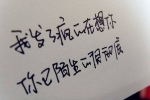 我发了疯似的在想你
你已陌生的很彻底